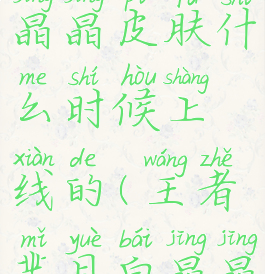 晶晶皮肤什
me shí hòu shàng
么时候上
xiàn de wáng zhě
线的(王者
mǐ yuè bái jīng jīng
芈月白晶晶